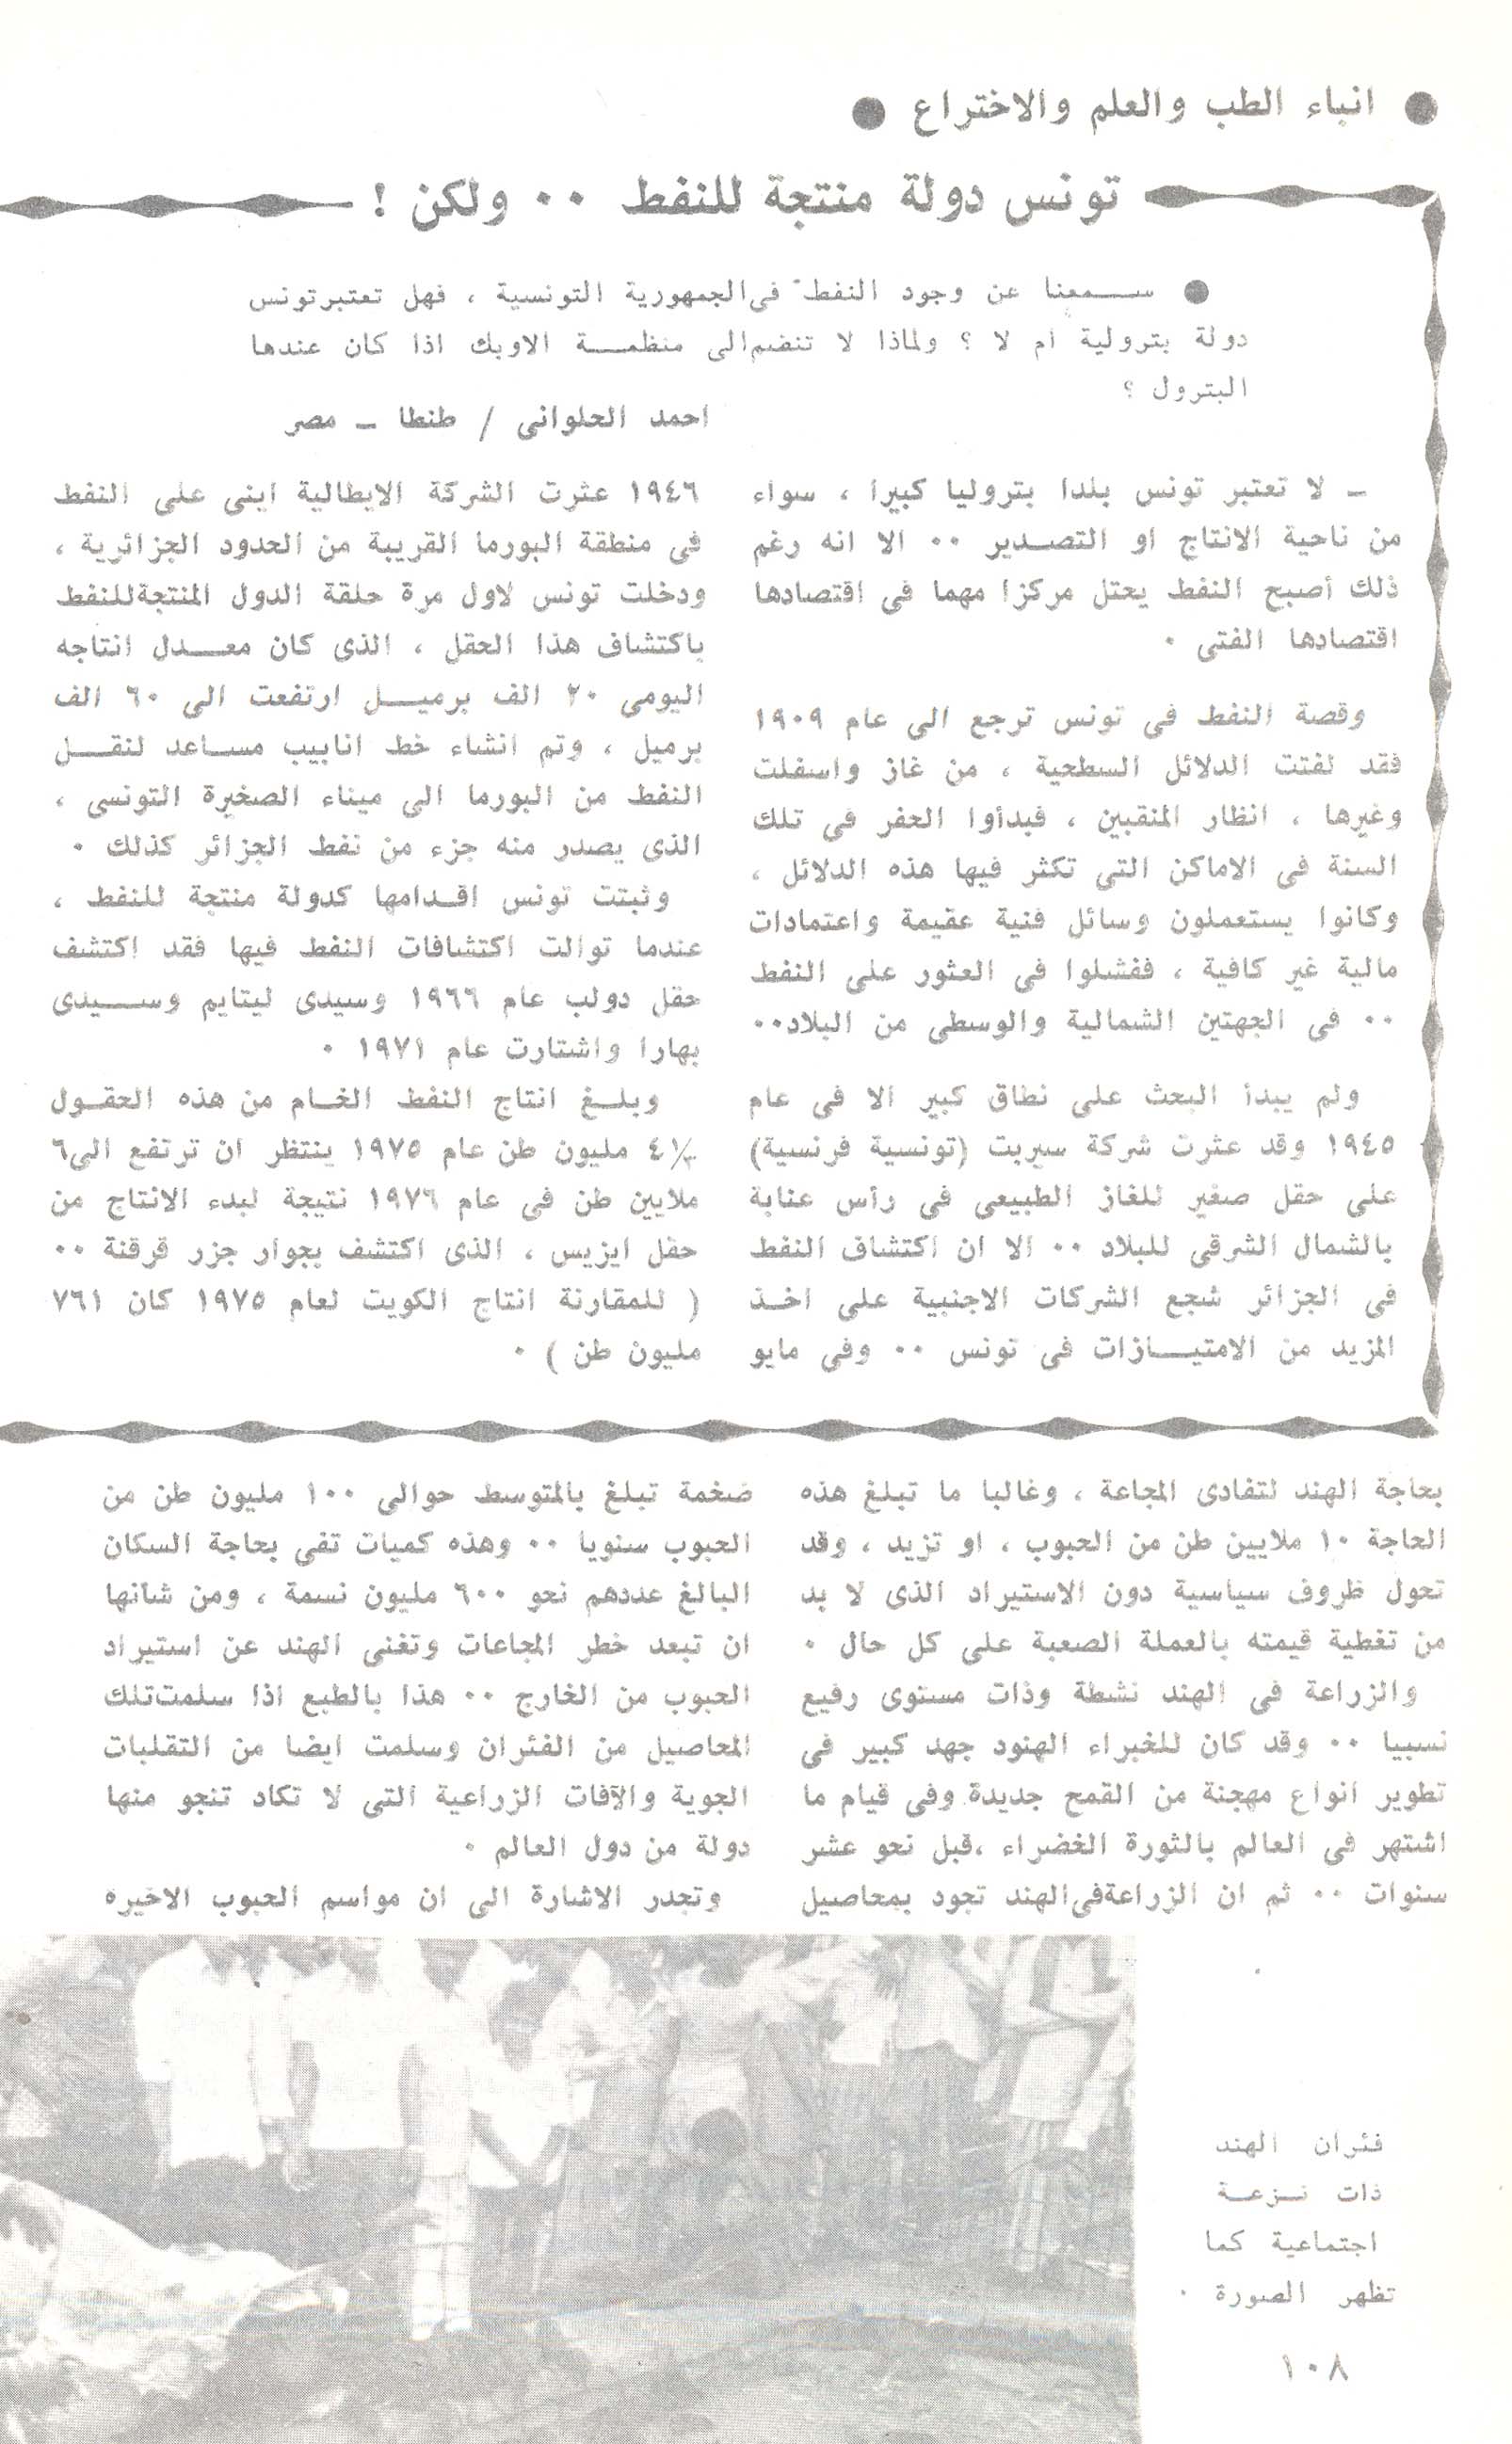 ● انباء الطب والعلم والاختراع ●
تونس دولة منتجة للنفط ٠٠ ولكن !
● سمعنا عن وجود النفط فى الجمهورية التونسية ، فهل تعتبر تونس
دولة بترولية ام لا ؟ ولماذا لا تنضم الى منظمة الاوبك اذا كان عندها
البترول ؟
احمد الحلوانى / طنطا ـ مصر
ـ لا تعتبر تونس بلدا بتروليا كبيرا ، سواء
من ناحية الانتاج او التصدير ٠٠ الا انه رغم
ذلك أصبح النفط يحتل مركزا مهما فى اقتصادها
اقتصادها الفتى ٠
وقصة النفط فى تونس ترجع الى عام ١٩٠٩
فقد لفتت الدلائل السطحية ، من غاز واسفلت
وغيرها ، انظار المنقبين ، فبدأوا الحفر فى تلك
السنة فى الاماكن التى تكثر فيها هذه الدلائل ،
وكانوا يستعملون وسائل فنية عقيمة واعتمادات
مالية غير كافية ، ففشلوا فى العثور على النفط
٠٠ فى الجهتين الشمالية والوسطى من البلاد٠٠
ولم يبدأ البحث على نطاق كبير الا فى عام
١٩٤٥ وقد عثرت شركة سيربت (تونسية فرنسية)
على حقل صغير للغاز الطبيعى فى رأس عنابة
بالشمال الشرقى للبلاد ٠٠ الا ان اكتشاف النفط
فى الجزائر شجع الشركات الاجنبية على اخذ
المزيد من الامتيازات فى تونس ٠٠ وفى مايو
١٩٤٦ عثرت الشركة الايطالية اينى على النفط
فى منطقة البورما القريبة من الحدود الجزائرية ،
ودخلت تونس لاول مرة حلقة الدول المنتجة للنفط
باكتشاف هذا الحقل ، الذى كان معدل انتاجه
اليومى ٢٠ الف برميل ارتفعت الى ٦٠ الف
برميل ، وتم انشاء خط انابيب مساعد لنقل
النفط من البورما الى ميناء الصخيرة التونسى ،
الذى يصدر منه جزء من نفط الجزائر كذلك ٠
وثبتت تونس اقدامها كدولة منتجة للنفط ،
عندما توالت اكتشافات النفط فيها فقد اكتشف
حقل دولب عام ١٩٦٦ وسيدى ليتايم وسيدى
بهارا واشتارت عام ١٩٧١ ٠
وبلغ انتاج النفط الخام من هذه الحقول
مليون طن عام ١٩٧٥ ينتظر ان ترتفع الى ٦
ملايين طن فى عام ١٩٧٦ نتيجة لبدء الانتاج من
حقل ايزيس ، الذى اكتشف بجوار جزر قرقنة ٠٠
( للمقارنة انتاج الكويت لعام ١٩٧٥ كان ٧٦١
مليون طن ) ٠
بحاجة الهند لتفادى المجاعة ، وغالبا ما تبلغ هذه
الحاجة ١٠ ملايين طن من الحبوب ، او تزيد ، وقد
تحول ظروف سياسية دون الاستيراد الذى لا بد
من تغطية قيمته بالعملة الصعبة على كل حال ٠
والزراعة فى الهند نشطة وذات مستوى رفيع
نسبيا ٠٠ وقد كان للخبراء الهنود جهد كبير فى
تطوير انواع مهجنة من القمح جديدة وفى قيام ما
اشتهر فى العالم بالثورة الخضراء ،قبل نحو عشر
سنوات ٠٠ ثم ان الزراعة فى الهند تجود بمحاصيل
ضخمة تبلغ بالمتوسط حوالى ١٠٠ مليون طن من
الحبوب سنويا ٠٠ وهذه كميات تفى بحاجة السكان
البالغ عددهم نحو ٦٠٠ مليون نسمة ، ومن شأنها
ان تبعد خطر المجاعات وتغنى الهند عن استيراد
الحبوب من الخارج ٠٠ هذا بالطبع اذا سلمت تلك
المحاصيل من الفئران وسلمت ايضا من التقلبات
الجوية والآفات الزراعية التى لا تكاد تنجو منها
دولة من دول العالم ٠
وتجدر الاشارة الى ان مواسم الحبوب الاخيره
فئران الهند
ذات نزعة
اجتماعية كما
تظهر الصورة ٠
١٠٨